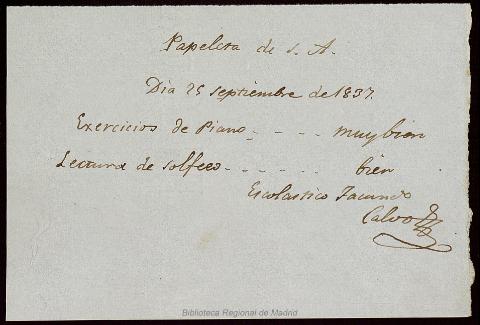 Papeleta de S. A.
Dia 25 septiembre de 1837.
Exercicios de Piano - - - - muy bien
Lectura de solfeo - - - - - - bien
Escolastico Facundo
Calvo
Biblioteca Regional de Madrid